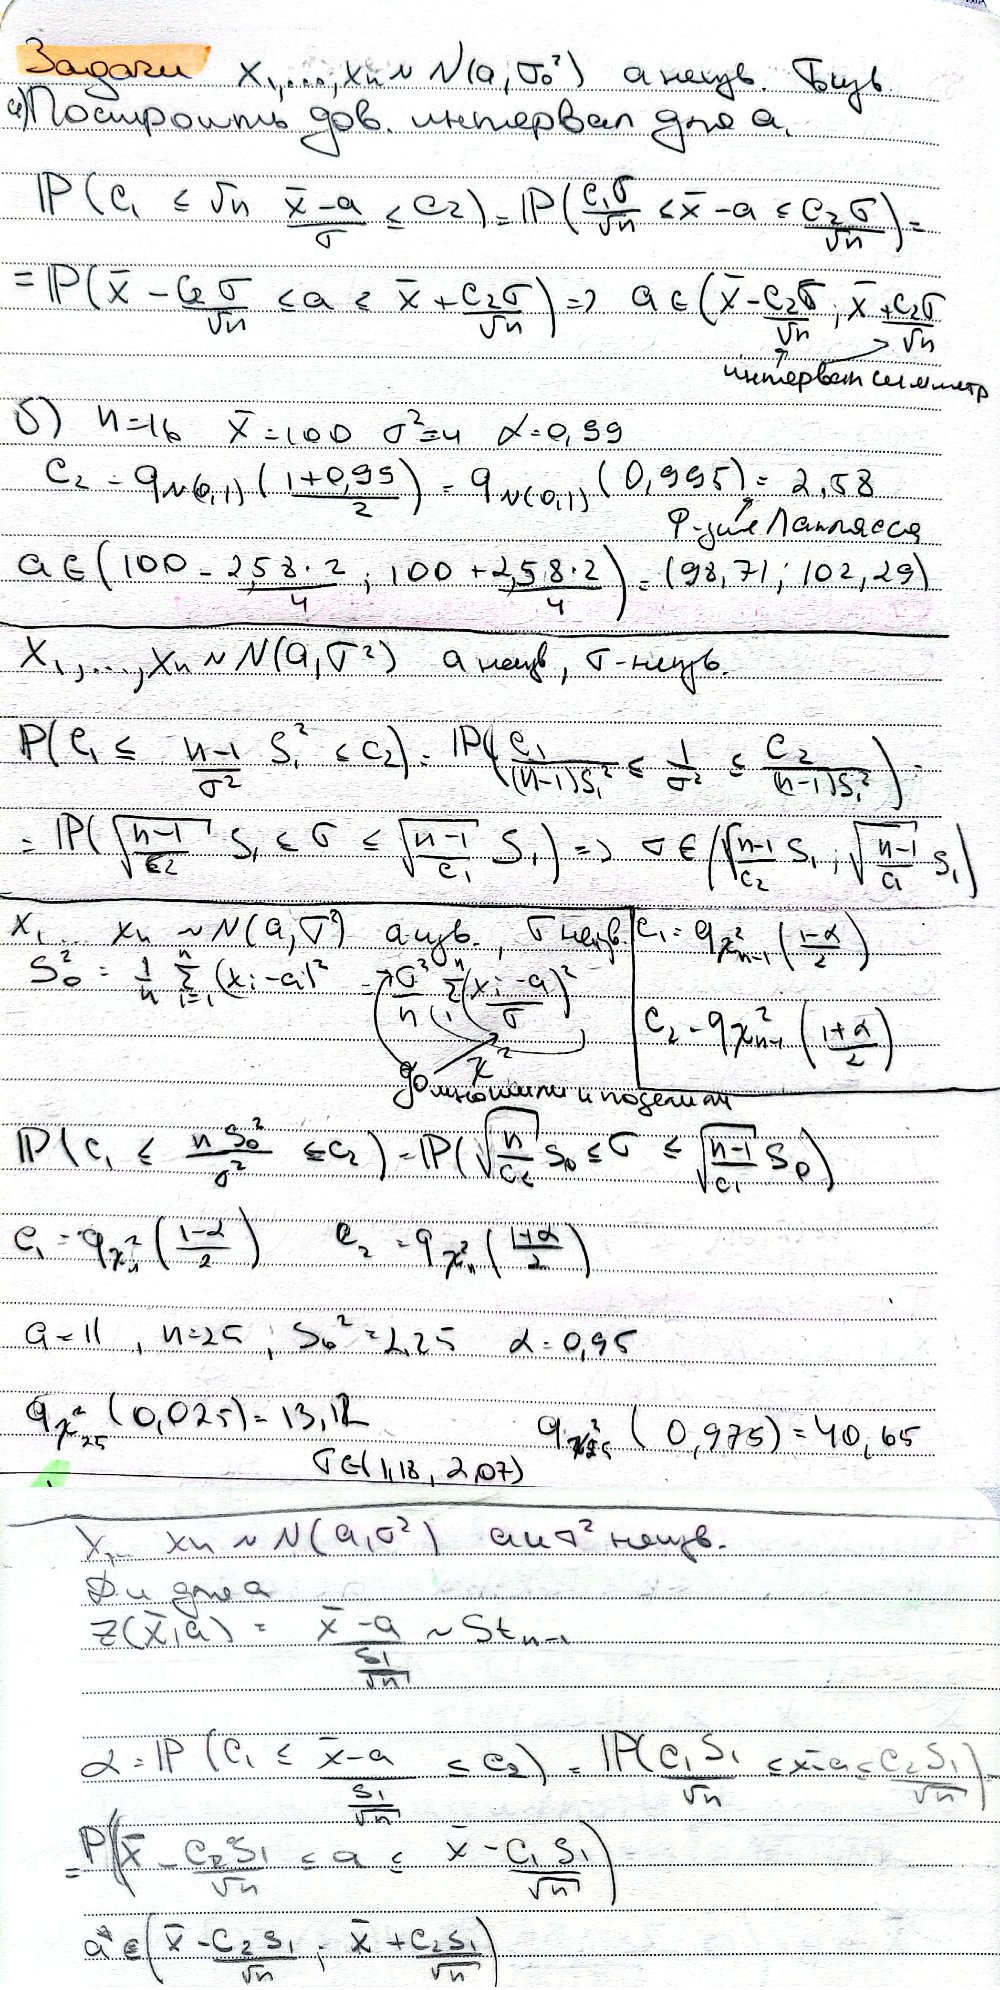 Задачи X₁,...,Xn ~ N(a, σ₀²) a неизв. σ изв.
а) Построить дов. интервал для a.
P(c₁ ≤ √n (x̄-a)/σ ≤ c₂) = P(c₁σ/√n ≤ x̄ - a ≤ c₂σ/√n) =
= P(x̄ - c₂σ/√n ≤ a ≤ x̄ + c₂σ/√n) => a ∈ (x̄ - c₂σ/√n ; x̄ + c₂σ/√n
интервал симметр
б) n=16 x̄=100 σ²=4 α=0,99
c₂ = q_N(0,1) ((1+0,99)/2) = q_N(0,1) (0,995) = 2,58
Ф-ция Лапласса
a ∈ (100 - 2,58·2/4 ; 100 + 2,58·2/4) = (98,71 ; 102,29)
X₁,...,Xn ~ N(a, σ²) a неизв, σ - неизв.
P(c₁ ≤ (n-1)/σ² S₁² ≤ c₂) = P(c₁/((n-1)S₁²) ≤ 1/σ² ≤ c₂/((n-1)S₁²)) =
= P(√((n-1)/c₂) S₁ ≤ σ ≤ √((n-1)/c₁) S₁) => σ ∈ (√((n-1)/c₂) S₁ ; √((n-1)/c₁) S₁)
X₁... Xn ~ N(a, σ²) a изв., σ неизв.
c₁ = q_χ²n-1 ((1-α)/2)
S₀² = 1/n Σ(i=1..n) (xi - a)² = σ²/n Σ(1..n) ((xi - a)/σ)²
c₂ = q_χ²n-1 ((1+α)/2)
χ²
домножили и поделили
P(c₁ ≤ nS₀²/σ² ≤ c₂) = P(√(n/c₂) S₀ ≤ σ ≤ √((n-1)/c₁) S₀)
c₁ = q_χ²n ((1-α)/2) c₂ = q_χ²n ((1+α)/2)
a = 11, n=25 ; S₀² = 2,25 α = 0,95
q_χ²25 (0,025) = 13,12 q_χ²25 (0,975) = 40,65
σ ∈ (1,18, 2,07)
X₁... Xn ~ N(a, σ²) a и σ² неизв.
Ди для a
Z(x̄, a) = (x̄ - a)/(S₁/√n) ~ St n-1
α = P(c₁ ≤ (x̄ - a)/(S₁/√n) ≤ c₂) = P(c₁S₁/√n ≤ x̄ - a ≤ c₂S₁/√n) =
= P(x̄ - c₂S₁/√n ≤ a ≤ x̄ - c₁S₁/√n)
a ∈ (x̄ - c₂S₁/√n ; x̄ + c₂S₁/√n)